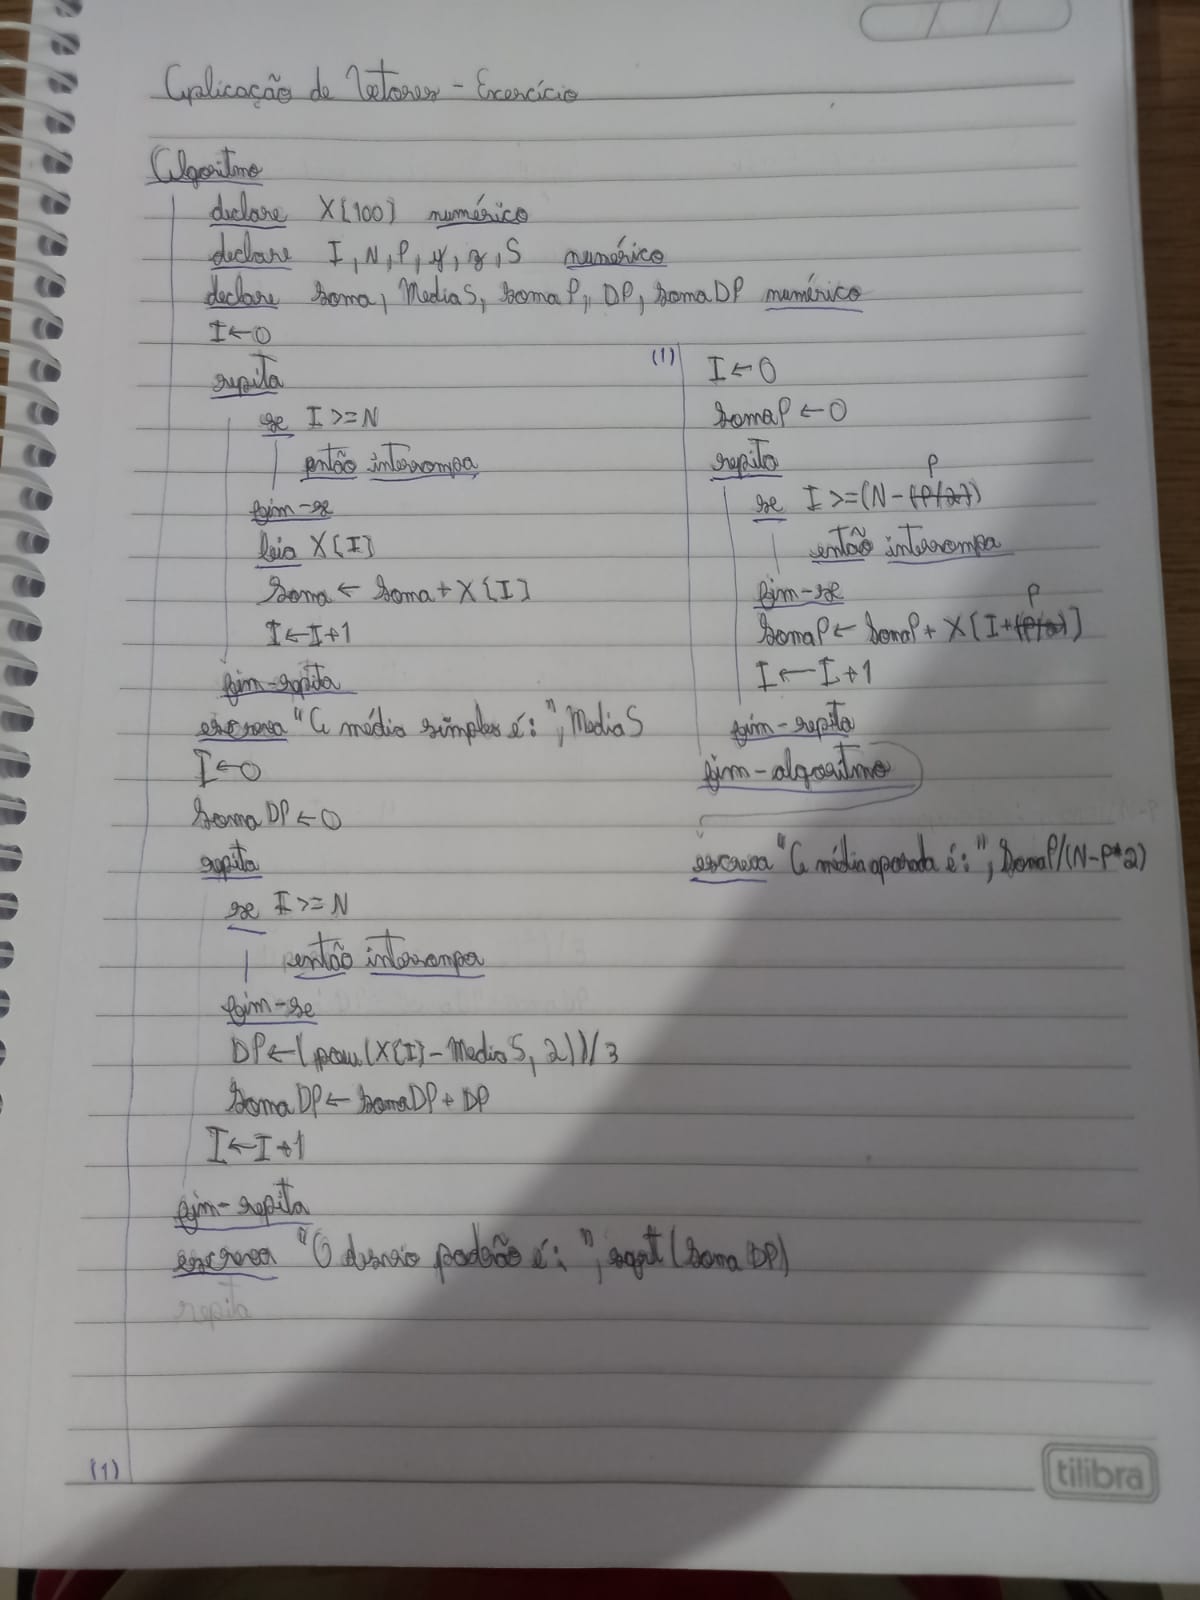 Aplicação de Vetores - Excercício
Algoritmo
declare X[100] numérico
declare I, N, P, y, z, S numérico
declare soma, MediaS, somaP, DP, somaDP numérico
I ← 0
repita
se I >= N
então interrompa
fim-se
leia X[I]
Soma ← Soma + X[I]
I ← I+1
fim-repita
escreva "A média simples é: ", MediaS
I ← 0
SomaDP ← 0
repita
se I >= N
então interrompa
fim-se
DP ← (pow(X[I] - MediaS, 2))/3
SomaDP ← SomaDP + DP
I ← I+1
fim-repita
escreva "O desvio padrão é: ", sqrt(SomaDP)
repita
(1)
(1)
I ← 0
SomaP ← 0
repita
P
se I >= (N - (P/2))
então interrompa
fim-se
P
SomaP ← SomaP + X[I + (P/2)]
I ← I+1
fim-repita
fim-algoritmo
escreva "A média aparada é: ", SomaP/(N-P*2)
tilibra